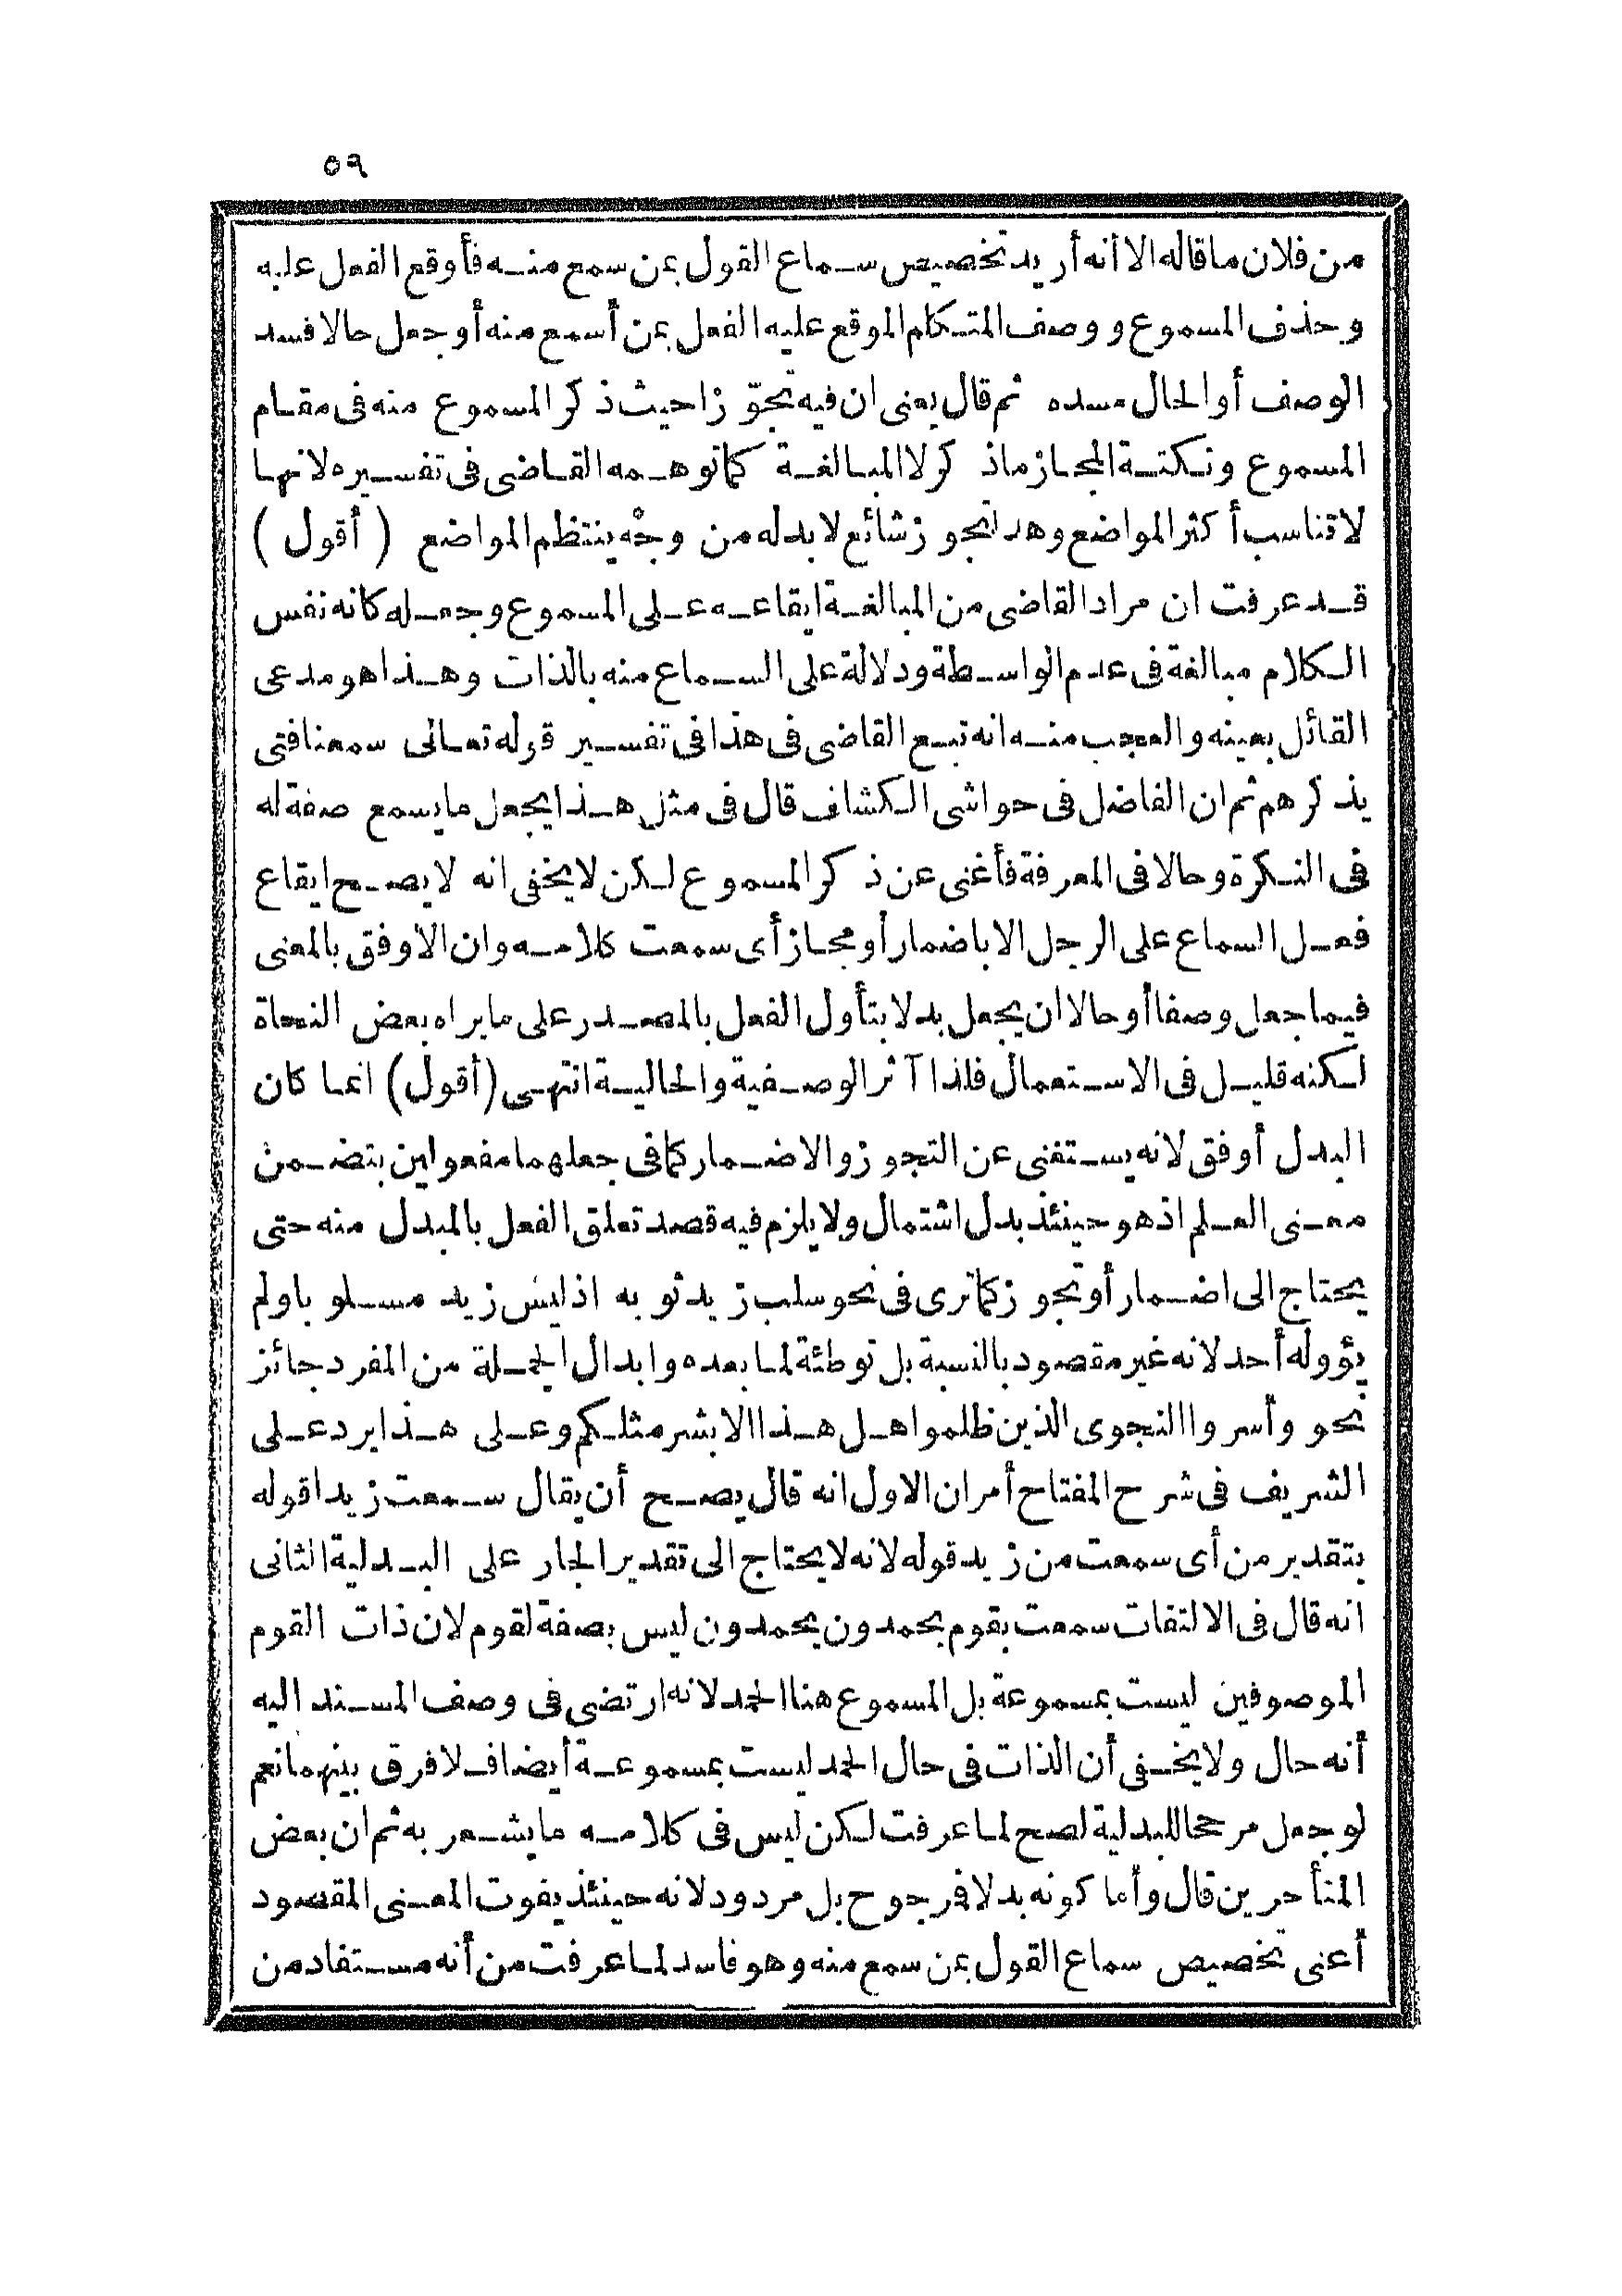 ٥٩
من فلان ما قاله الا أنه أريد تخصيص سماع القول بمن سمع منه فأوقع الفعل عليه
وحذف المسموع ووصف المتكلم الموقع عليه الفعل بمن أسمع منه أو جعل حالا فسد
الوصف أو الحال مسده ثم قال يعنى ان فيه تجوّزا حيث ذكر المسموع منه فى مقام
المسموع ونكتة المجاز ماذكر لا المبالغة كما توهمه القاضى فى تفسيره لانها
لا تناسب أكثر المواضع وهذا تجوز شائع لا بد له من وجه ينتظم المواضع (أقول)
قد عرفت ان مراد القاضى من المبالغة ايقاعه على المسموع وجعله كانه نفس
الكلام مبالغة فى عدم الواسطة ودلالة على السماع منه بالذات وهذا هو مدعى
القائل بعينه والعجب منه انه تبع القاضى فى هذا فى تفسير قوله تعالى سمعنا فتى
يذكرهم ثم ان الفاضل فى حواشى الكشاف قال فى مثل هذا يجعل ما يسمع صفة له
فى النكرة وحالا فى المعرفة فأغنى عن ذكر المسموع لكن لا يخفى انه لا يصح ايقاع
فعل السماع على الرجل الا باضمار أو مجاز أى سمعت كلامه وان الاوفق بالمعنى
فيما جعل وصفا أو حالا ان يجعل بدلا بتأول الفعل بالمصدر على ما يراه بعض النحاة
لكنه قليل فى الاستعمال فلذا آثر الوصفية والحالية انتهى (أقول) انما كان
البدل أوفق لانه يستغنى عن التجوز والاضمار كما فى جعلهما مفعولين بتضمن
معنى العلم اذ هو حينئذ بدل اشتمال ولا يلزم فيه قصد تعلق الفعل بالمبدل منه حتى
يحتاج الى اضمار أو تجوز كما ترى فى نحو سلب زيد ثوبه اذ ليس زيد مسلوبا ولم
يؤوله أحد لانه غير مقصود بالنسبة بل توطئة لما بعده وابدال الجملة من المفرد جائز
نحو وأسروا النجوى الذين ظلموا هل هذا الا بشر مثلكم وعلى هذا يرد على
الشريف فى شرح المفتاح أمران الاول انه قال يصح أن يقال سمعت زيدا قوله
بتقدير من أى سمعت من زيد قوله لانه لا يحتاج الى تقدير الجار على البدلية الثانى
انه قال فى الالتفات سمعت بقوم يحمدون يحمدون ليس بصفة لقوم لان ذات القوم
الموصوفين ليست بمسموعة بل المسموع هنا الحمد لانه ارتضى فى وصف المسند اليه
أنه حال ولا يخفى أن الذات فى حال الحمد ليست بمسموعة أيضا فلا فرق بينهما نعم
لو جعل مرجحا للبدلية لصح لما عرفت لكن ليس فى كلامه ما يشعر به ثم ان بعض
المتأخرين قال وأما كونه بدلا فمرجوح بل مردود لانه حينئذ يفوت المعنى المقصود
أعنى تخصيص سماع القول بمن سمع منه وهو فاسد لما عرفت من أنه مستفاد من